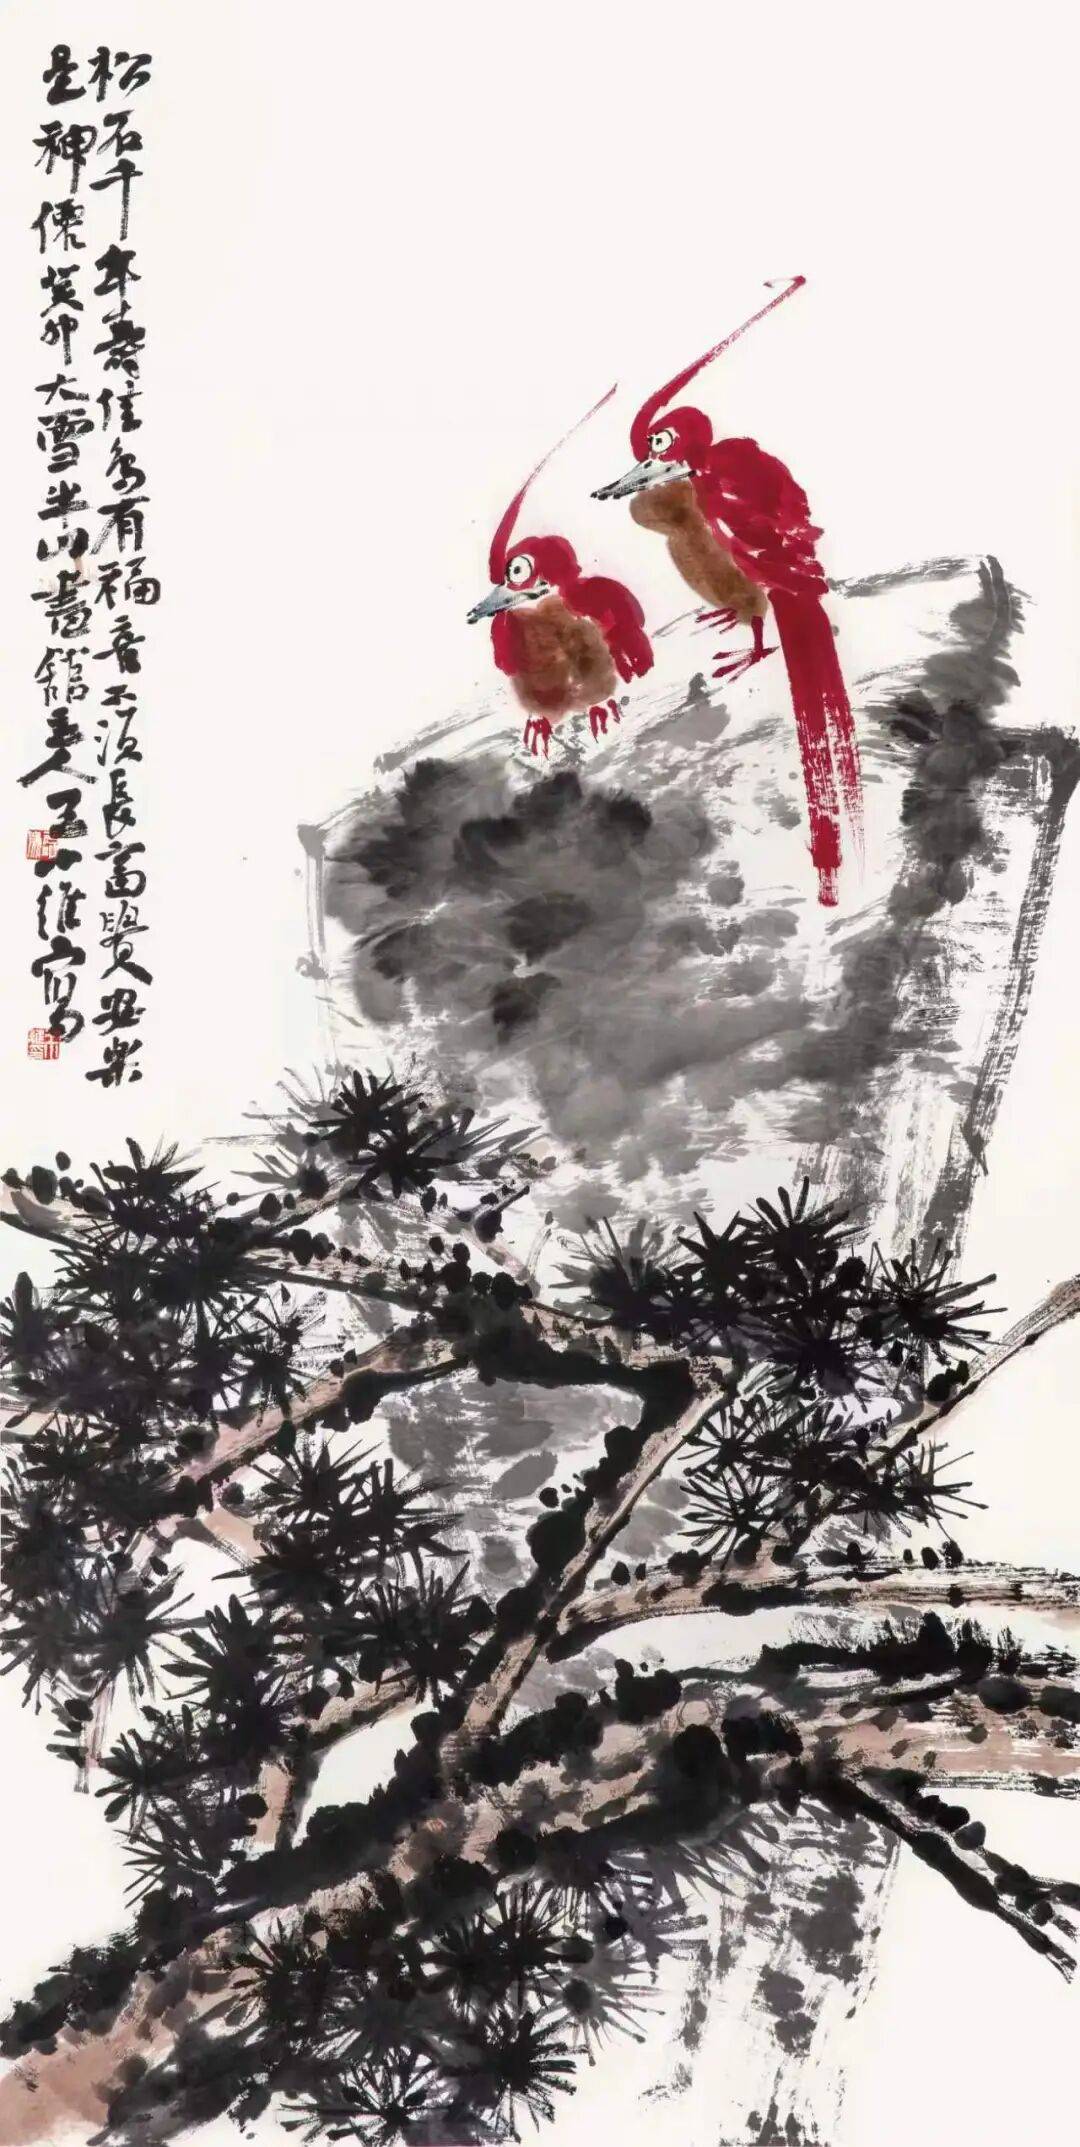 松石千年壽信鳥有福音不須長富貴安樂
是神僊癸卯大雪半山畫館主人王小維寫